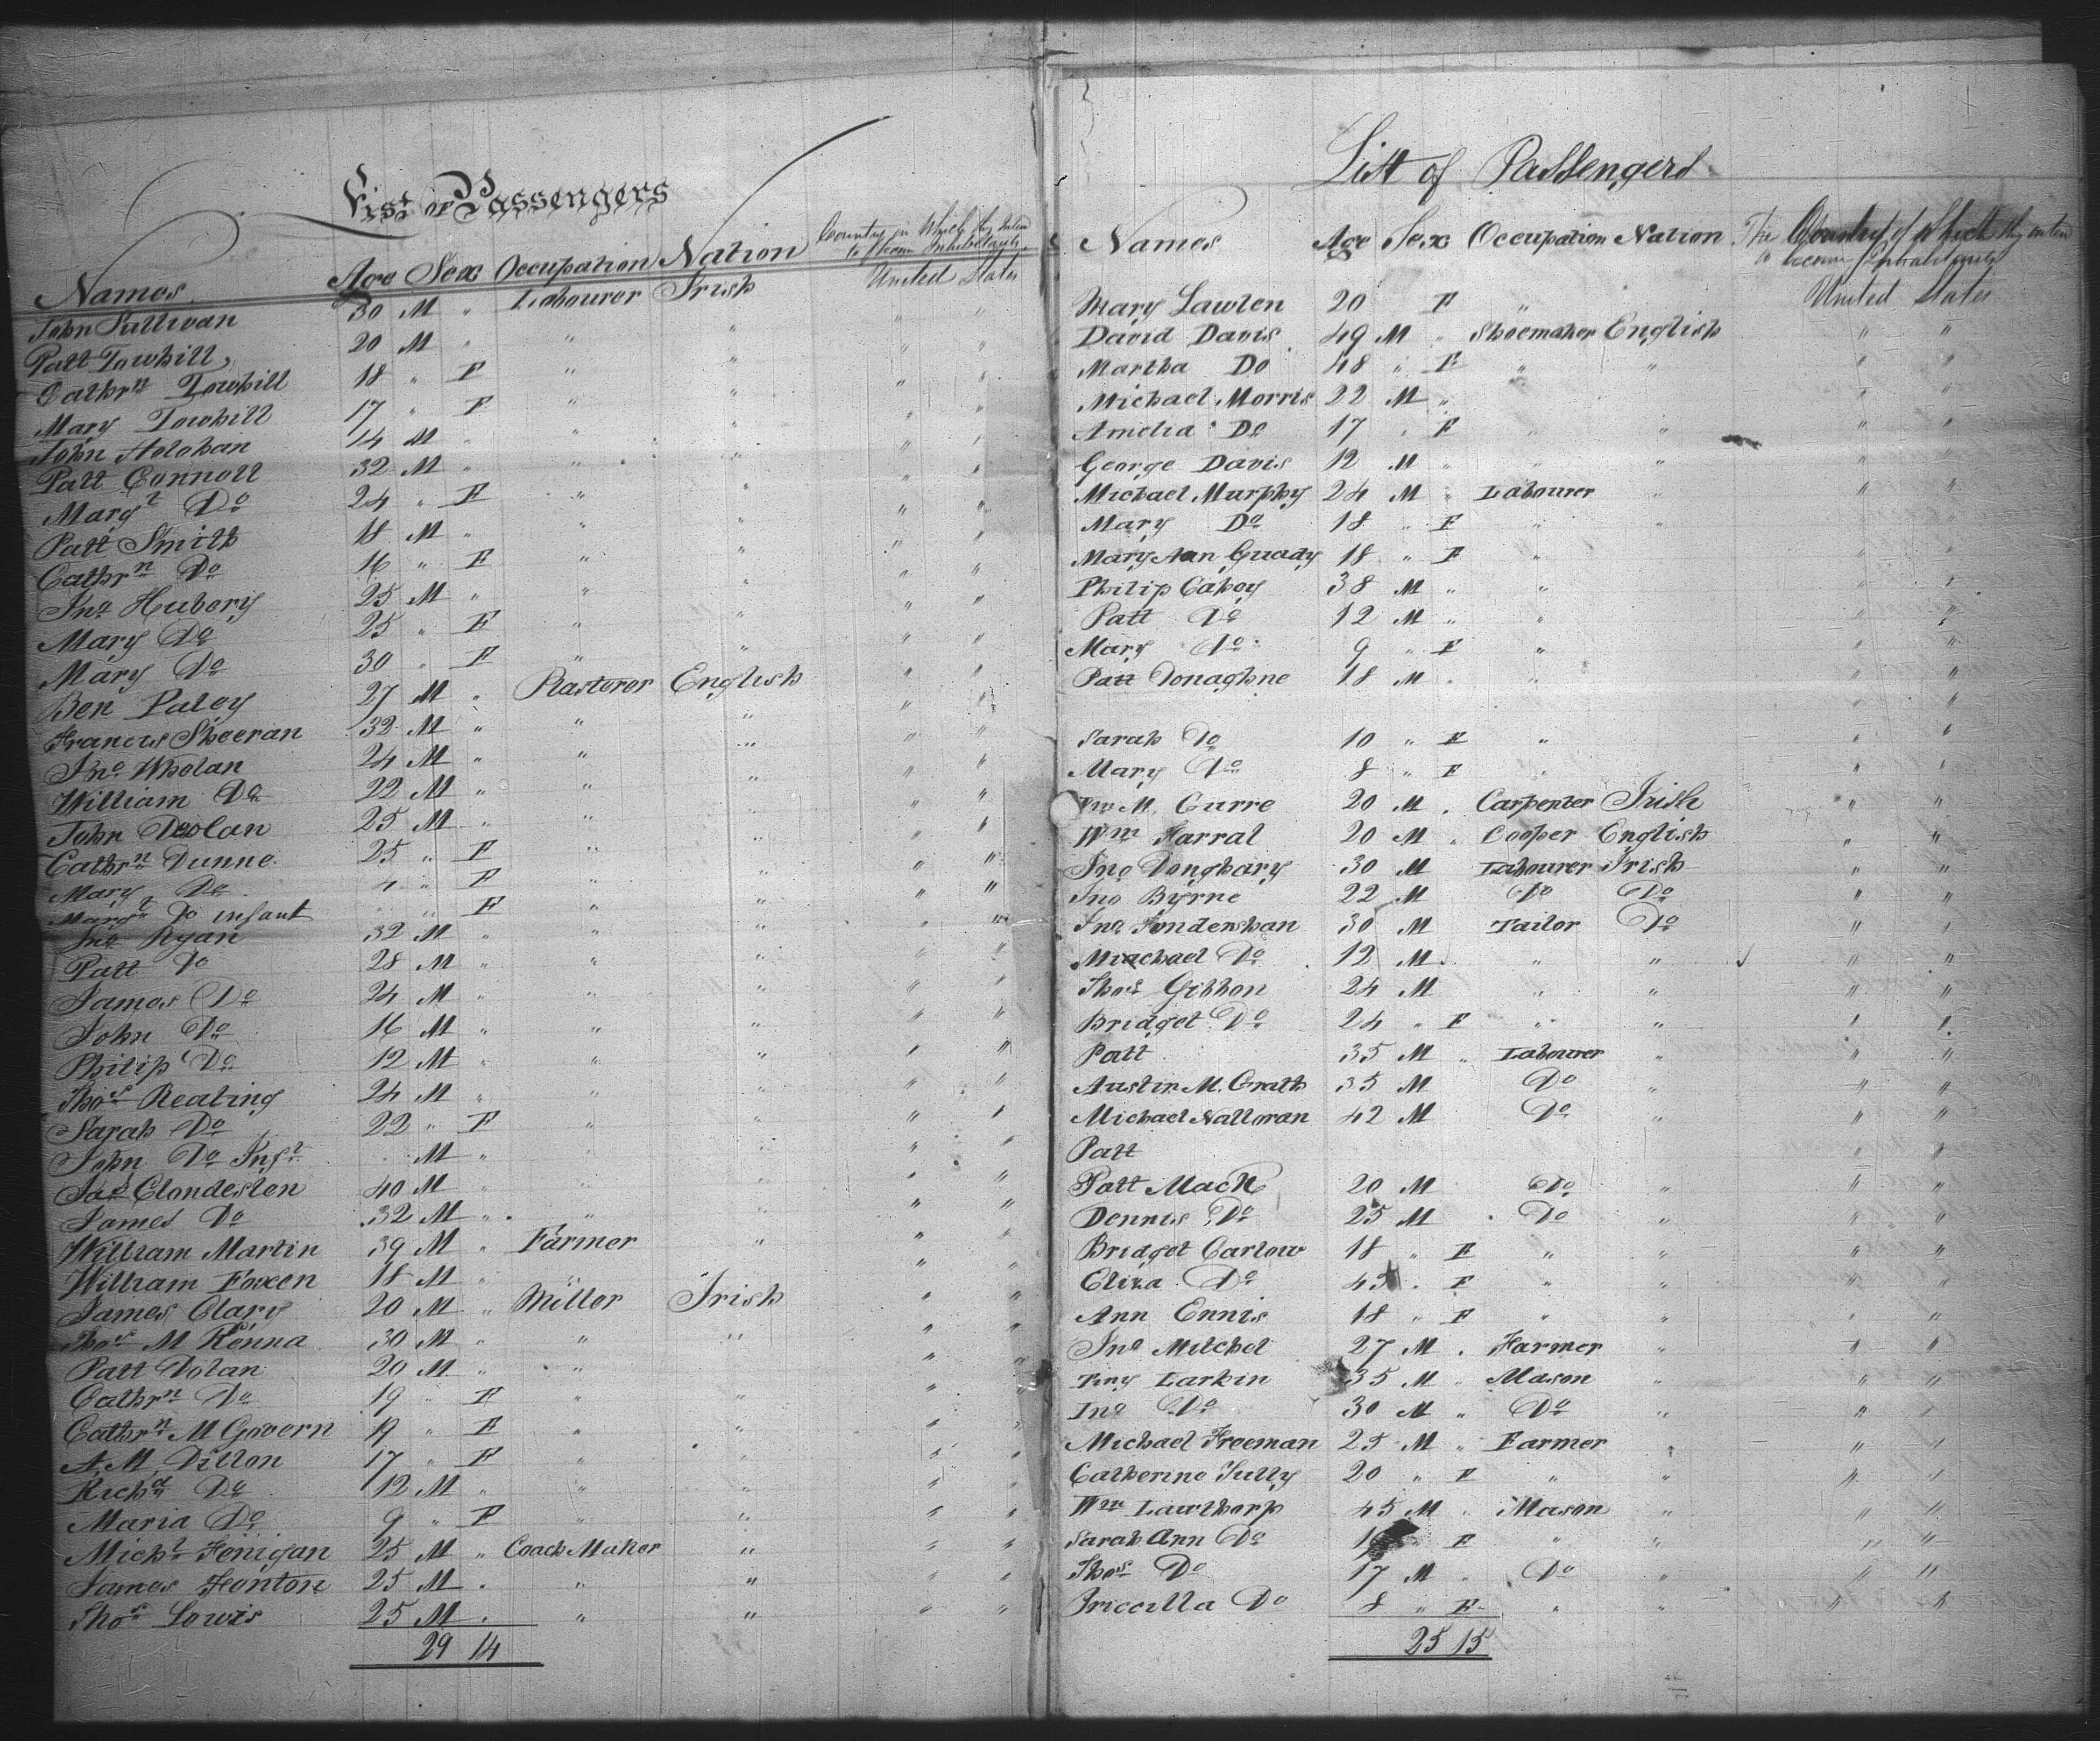 List of Passengers
Names Age Sex Occupation Nation Country in Which they Inten
to become Inhabitants
John Sullivan 30 M " Labourer Irish United States
Patt Towhill 20 M " " " " "
Cathrn Towhill 18 " F " " " "
Mary Towhill 17 " F " " " "
John Holohan 14 M " " " " "
Patt Connoll 32 M " " " " "
Margt Do 24 " F " " " "
Patt Smith 18 M " " " " "
Cathrn Do 16 " F " " " "
Jno Hubery 25 M " " " " "
Mary Do 25 " F " " " "
Mary Do 30 " F " " " "
Ben Paley 27 M " Plasterer English " "
Francis Sheeran 32 M " " " " "
Jno Whelan 24 M " " " " "
William Do 22 M " " " " "
John Doolan 25 M " " " " "
Cathrn Dunne 25 " F " " " "
Mary Do 4 " F " " " "
Margt Do infant " F " " " "
Jno Ryan 32 M " " " " "
Patt Do 28 M " " " " "
James Do 24 M " " " " "
John Do 16 M " " " " "
Philip Do 12 M " " " " "
Thos Keating 24 M " " " " "
Sarah Do 22 " F " " " "
John Do Inft M " " " " "
Jas Clondesten 40 M " " " "
James Do 32 M " " " " "
William Martin 39 M " Farmer " " "
William Foxen 18 M " " " "
James Clary 20 M " Miller Irish " "
Thos M Kenna 30 M " " " " "
Patt Dolan 20 M " " " "
Cathrn Do 19 " F " " " "
Cathrn M Govern 19 " F " " " "
A. M. Dillon 17 " F " " " "
Richd Do 12 M " " " " "
Maria Do 9 " F " " " "
Michl Fenigan 25 M " Coach Maker " " "
James Fenton 25 M " " " " "
Thos Lowis 25 M " " " " "
29 14
List of Passengers
Names Age Sex Occupation Nation The Country of Which they inten
to become Inhabitants
Mary Lawlen 20 F " United States
David Davis 49 M " Shoemaker English " "
Martha Do 48 " F " " " "
Michael Morris 22 M " " "
Amelia Do 17 " F " " "
George Davis 12 M " " " "
Michael Murphy 24 M " Labourer " " "
Mary Do 18 " F " " " "
Mary Ann Guady 18 " F " " "
Philip Cahey 38 M " " " "
Patt Do 12 M " " " "
Mary Do 9 " F " " "
Patt Donaghne 18 M " " " "
Sarah Do 10 " F " " "
Mary Do 8 " F " " "
M. Curre 20 M " Carpenter Irish " "
Wm Farral 20 M " Cooper English " "
Jno Donghary 30 M Labourer Irish " "
Jno Byrne 22 M Do Do " "
Jno Fondershan 30 M Tailor Do " "
Michael Do 12 M " " " "
Thos Gibbon 24 M " " " "
Bridget Do 24 " F " " " "
Patt 35 M " Labourer " " "
Austin M. Grath 35 M Do " " "
Michael Nalloran 42 M Do " " "
Patt " "
Patt Mack 20 M Do " " "
Dennis Do 25 M Do " " "
Bridget Carlow 18 " F " " " "
Eliza Do 45 " F " " " "
Ann Ennis 18 " F " " " "
Jno Mitchel 27 M " Farmer " " "
Larkin 35 M " Mason " " "
Jno Do 30 M " Do " " "
Michael Freeman 25 M " Farmer " " "
Catherine Tully 20 " F " " " "
Wm Lawthorp 45 M " Mason " " "
Sarah Ann Do F " " " "
Thos Do 17 M " Do " " "
Priccilla Do 8 " F " " " "
25 15